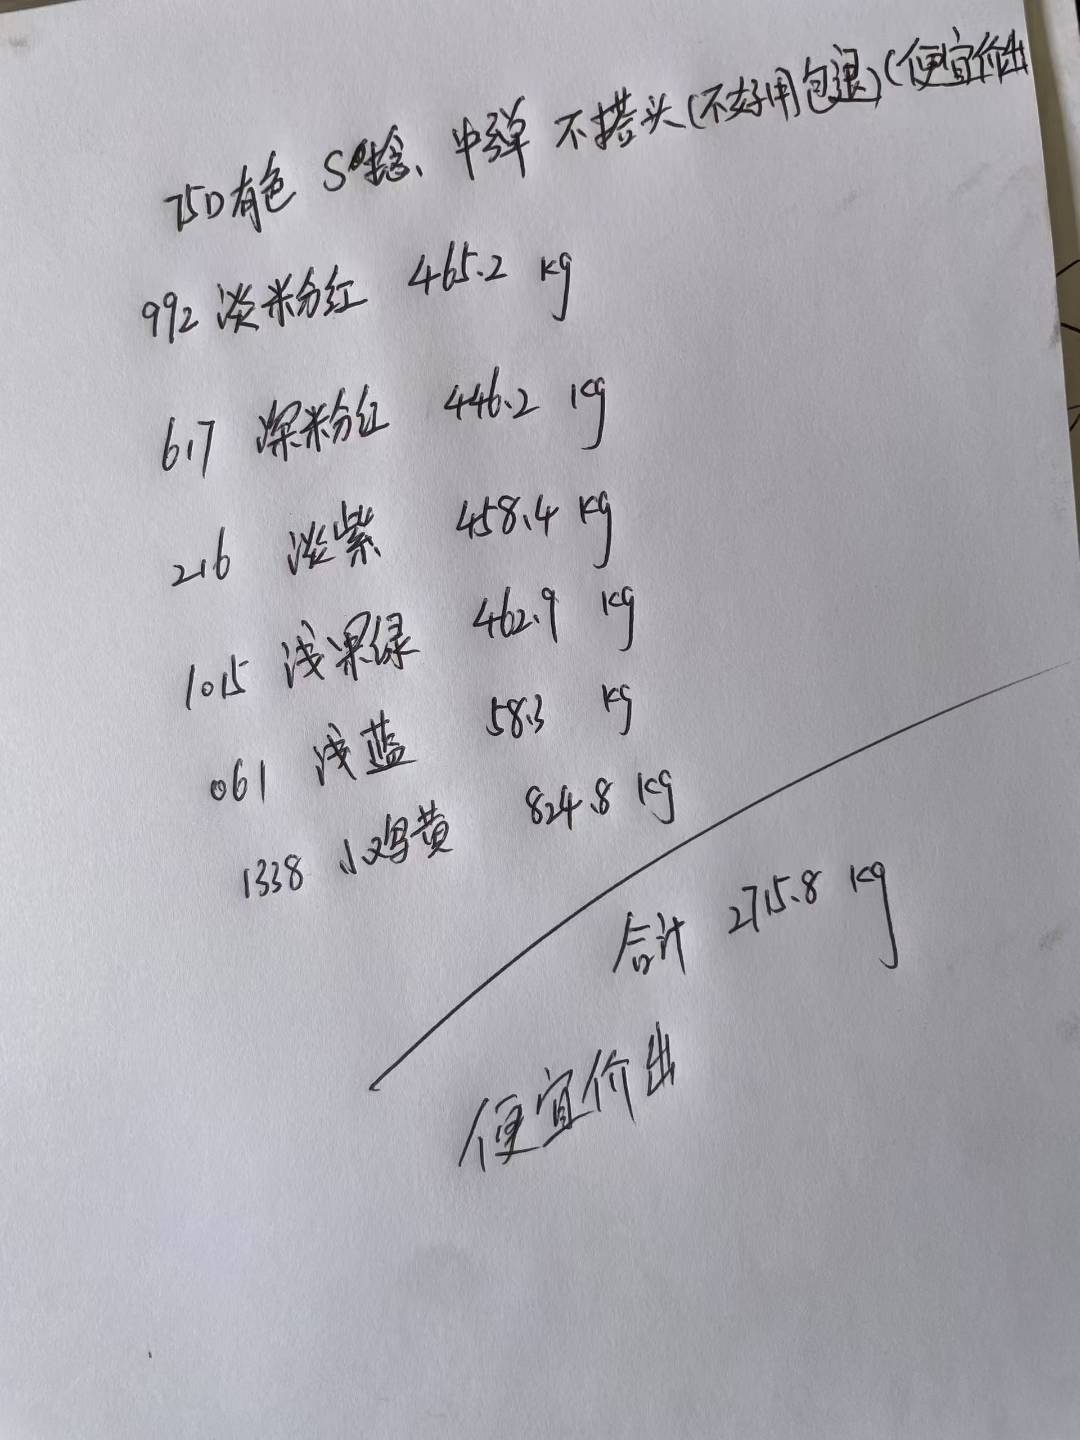 75D有色 S捻、中弹 不搭头(不好用包退)(便宜价出
992 淡米分红 465.2 kg
617 深粉红 446.2 kg
216 淡紫 458.4 kg
1015 浅果绿 462.9 kg
061 浅蓝 58.3 kg
1338 小鸡黄 824.8 kg
合计 2715.8 kg
便宜价出